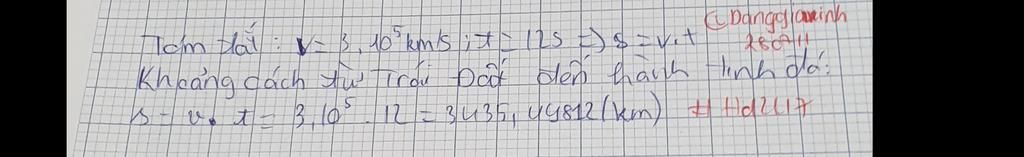 Tóm tắt: v = 3.10^5 km/s; t = 12s => s = v.t
Khoảng cách từ Trái Đất đến hành tinh đó:
s = v. t = 3.10^5 . 12 = 3435,44812 (km)
@Danggiaminh
# Hd247